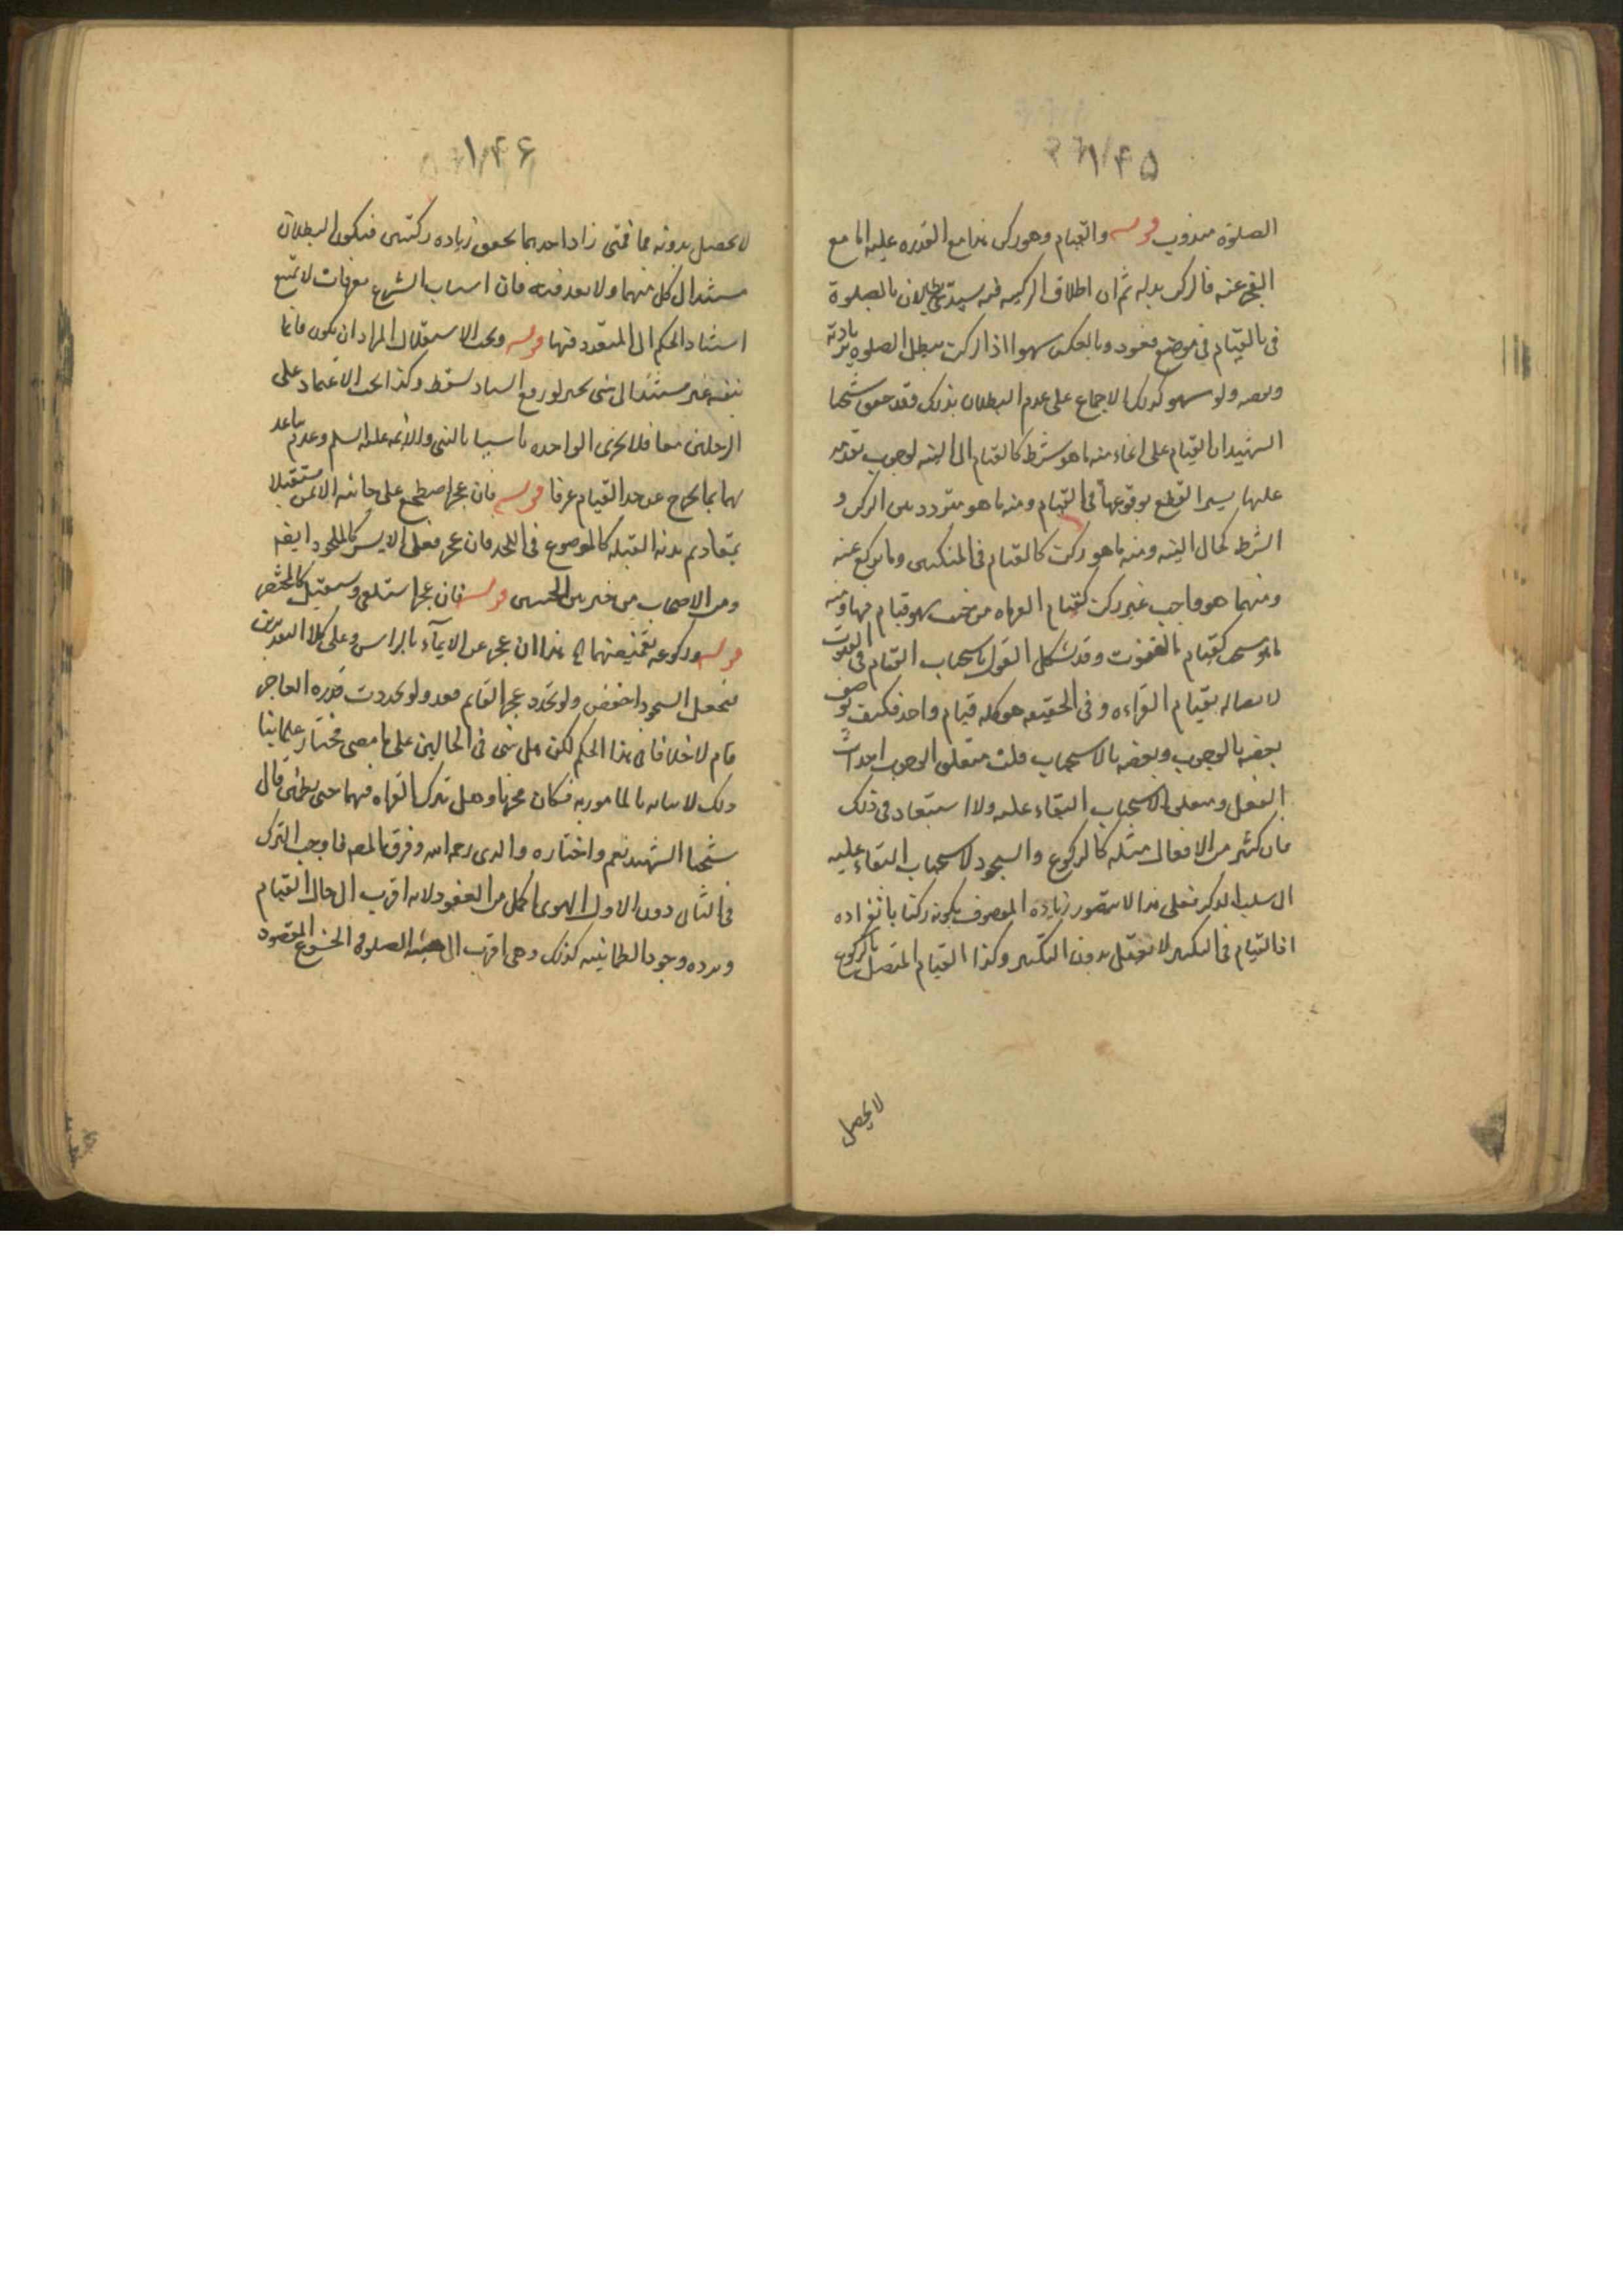 ١٤٥
الصلوة مندوب قوله والقيام وهو ركن هذا مع القدره عليه اما مع
العجز عنه فالركن بدله ثم ان اطلاق الركنيه فيه يستدعى بطلان الصلوة
فى بالقيام فى موضع قعود وبالعكس سهوا اذ الركن تبطل الصلوه بزيادته
ونقصه ولو سهو كذلك الاجماع على عدم البطلان بذلك وقد حقق شيخنا
الشهيد ان القيام على انحاء منه ما هو شرط كالقيام الى النيه لوجوب تقدمه
عليها يسيرا لقطع بوقوعها فى القيام ومنه ما هو متردد بين الركن و
الشرط كحال النيه ومنه ما هو ركن كالقيام فى التكبير وما يركع عنه
ومنها هو واجب غير ركن كقيام القراه من حيث هو قيام فيها ومنه
ما يوسم كقيام القنوت وقد يشكل القول باستحباب القيام فى القنوت
لاتصاله بقيام القراءه وفى الحقيقه هو كله قيام واحد فكيف يوصف
بعضه بالوجوب وبعضه بالاستحباب قلت متعلق الوجوب احداث
الفعل ومتعلق الاستحباب البقاء عليه ولا استبعاد فى ذلك
فان كثير من الافعال مثله كالركوع والسجود لاستحباب البقاء عليه
الى سلب الذكر فعلى هذا لا يتصور زياده الموصوف بكونه ركنا بانفراده
اذ القيام فى التكبير لا يحصل بدون التكبير وكذا القيام المتصل بالركوع
لا يحصل
١٤٦
لا يحصل بدونه فما متى زاد احدهما تحقق زياده ركنين فيكون البطلان
مستندا الى كل منهما ولا بعد فيه فان اسباب الشرع معرفات لا تمنع
استناد الحكم الى المتعدد منها قوله ويجب الاستقلال المراد ان يكون قائما
بنفسه غير مستند الى شى بحيث لو رفع السناد لسقط وكذا يجب الاعتماد على
الرجلين معا فلا تجزى الواحده تاسيا بالنبى والائمه عليهم السلم وعدم تباعد
هما بما يخرج عن حد القيام عرفا قوله فان عجز اضطجع على جانبه الايمن مستقبلا
بمقاديم بدنه القبله كالموضوع فى اللحد فان عجز فعلى الايسر كالملحود ايضا
ومن الاصحاب من خير بين الجنبين قوله فان عجز استلقى ويستقبل كالمحتضر
قوله وركوعه تغميضهما الخ هذا ان عجز عن الايماء بالراس وعلى كلا التقديرين
فيجعل السجود اخفض ولو تجدد عجز القايم قعد ولو تجددت قدره العاجز
قام لا خلاف فى هذا الحكم لكن هل يبنى فى الحالين على ما مضى مختار علماينا
ذلك لاتيانه بالمامور به فكان مجزيا وهل يترك القراه فيهما حتى يطمئن قال
شيخنا الشهيد نعم واختاره والدى رحمه الله وفرق المصه فاوجب الترك
فى الثانى دون الاول الهوى اكمل من القعود لانه اقرب الى حال القيام
ويرده وجود الطمانينه كذلك وهى اقرب الى هيئة الصلوه والخشوع المقصود